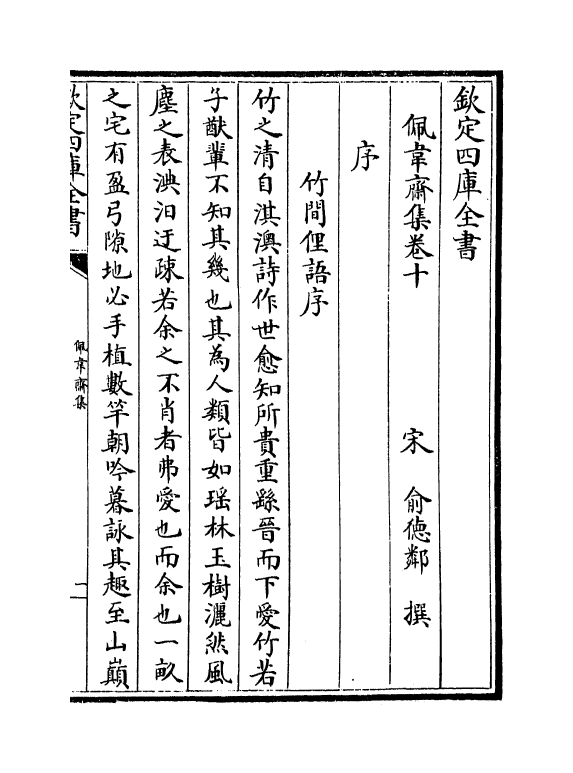 欽定四庫全書
佩韋齋集卷十
宋 俞德鄰 撰
序
竹間俚語序
竹之清自淇澳詩作世愈知所貴重繇晉而下愛竹若
子猷輩不知其幾也其為人類皆如瑶林玉樹灑然風
塵之表淟汨迂疎若余之不肖者弗愛也而余也一畝
之宅有盈弓隙地必手植數竿朝吟暮詠其趣至山巔
欽定四庫全書
佩韋齋集
一